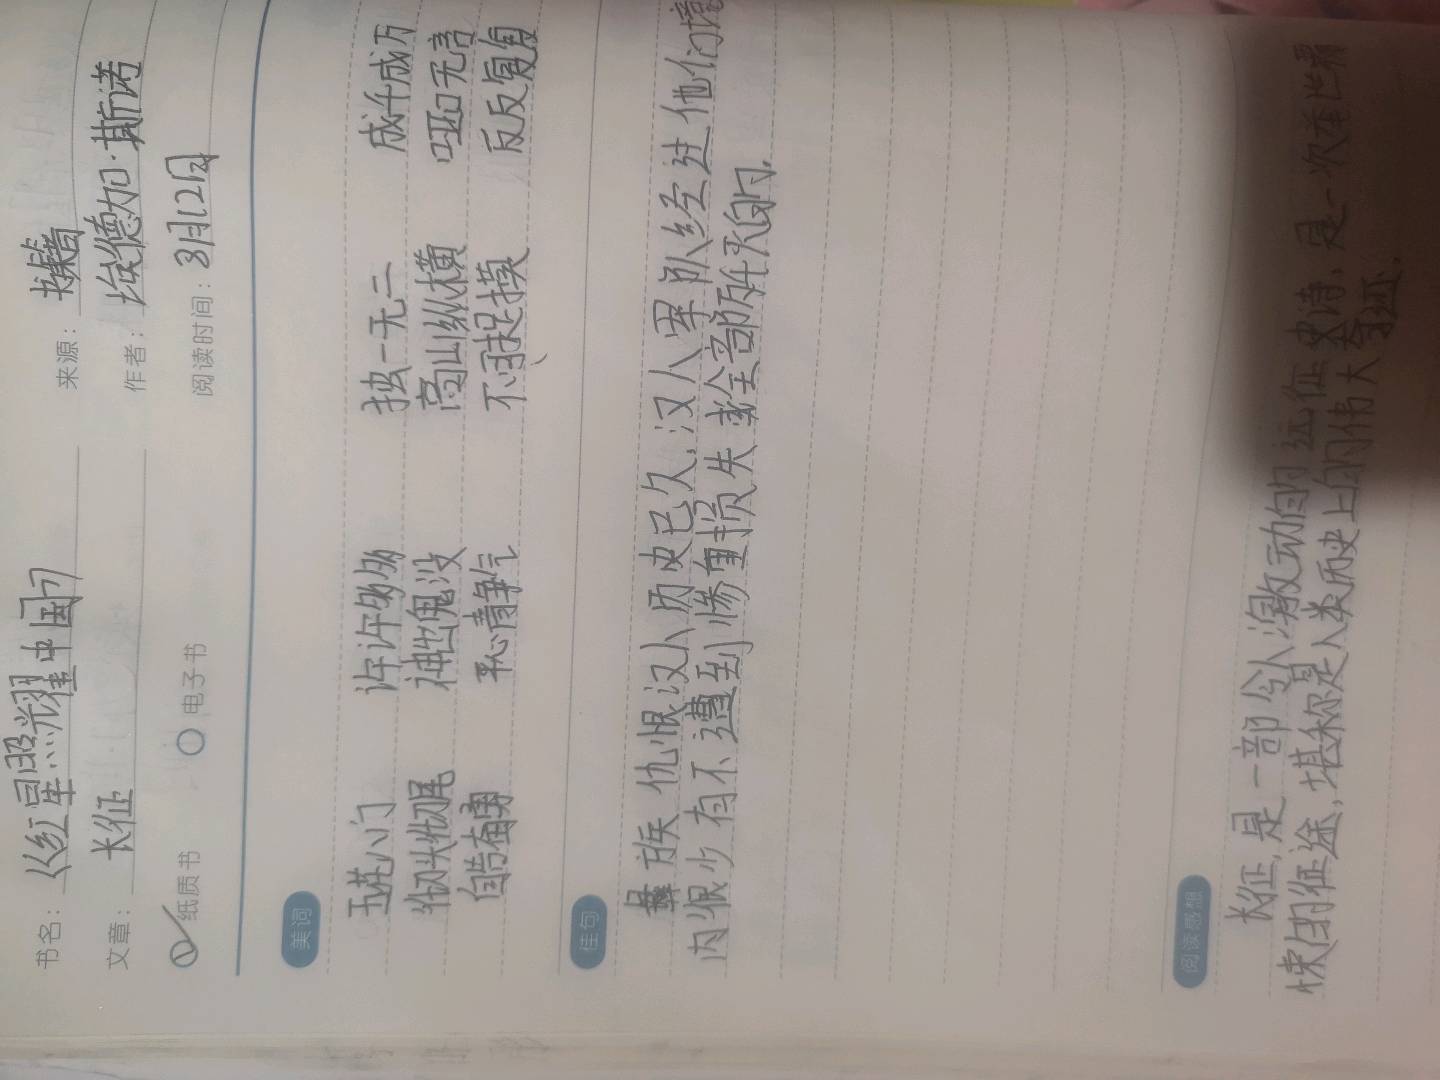 书名：《红星照耀中国》 来源：
文章：长征 作者：埃德加·斯诺
纸质书 电子书 阅读时间：3月12日
美词
许许多多 独一无二 成千成万
彻头彻尾 神出鬼没 高山纵横 哑口无言
自告奋勇 平心静气 不可捉摸 反反复复
佳句
彝族仇恨汉人历史已久，汉人军队经过他们境
内很少有不遭到惨重损失或全部歼灭的。
阅读感想
长征，是一部令人激动的远征史诗，是一次
的征途，堪称是人类历史上的伟大奇迹。